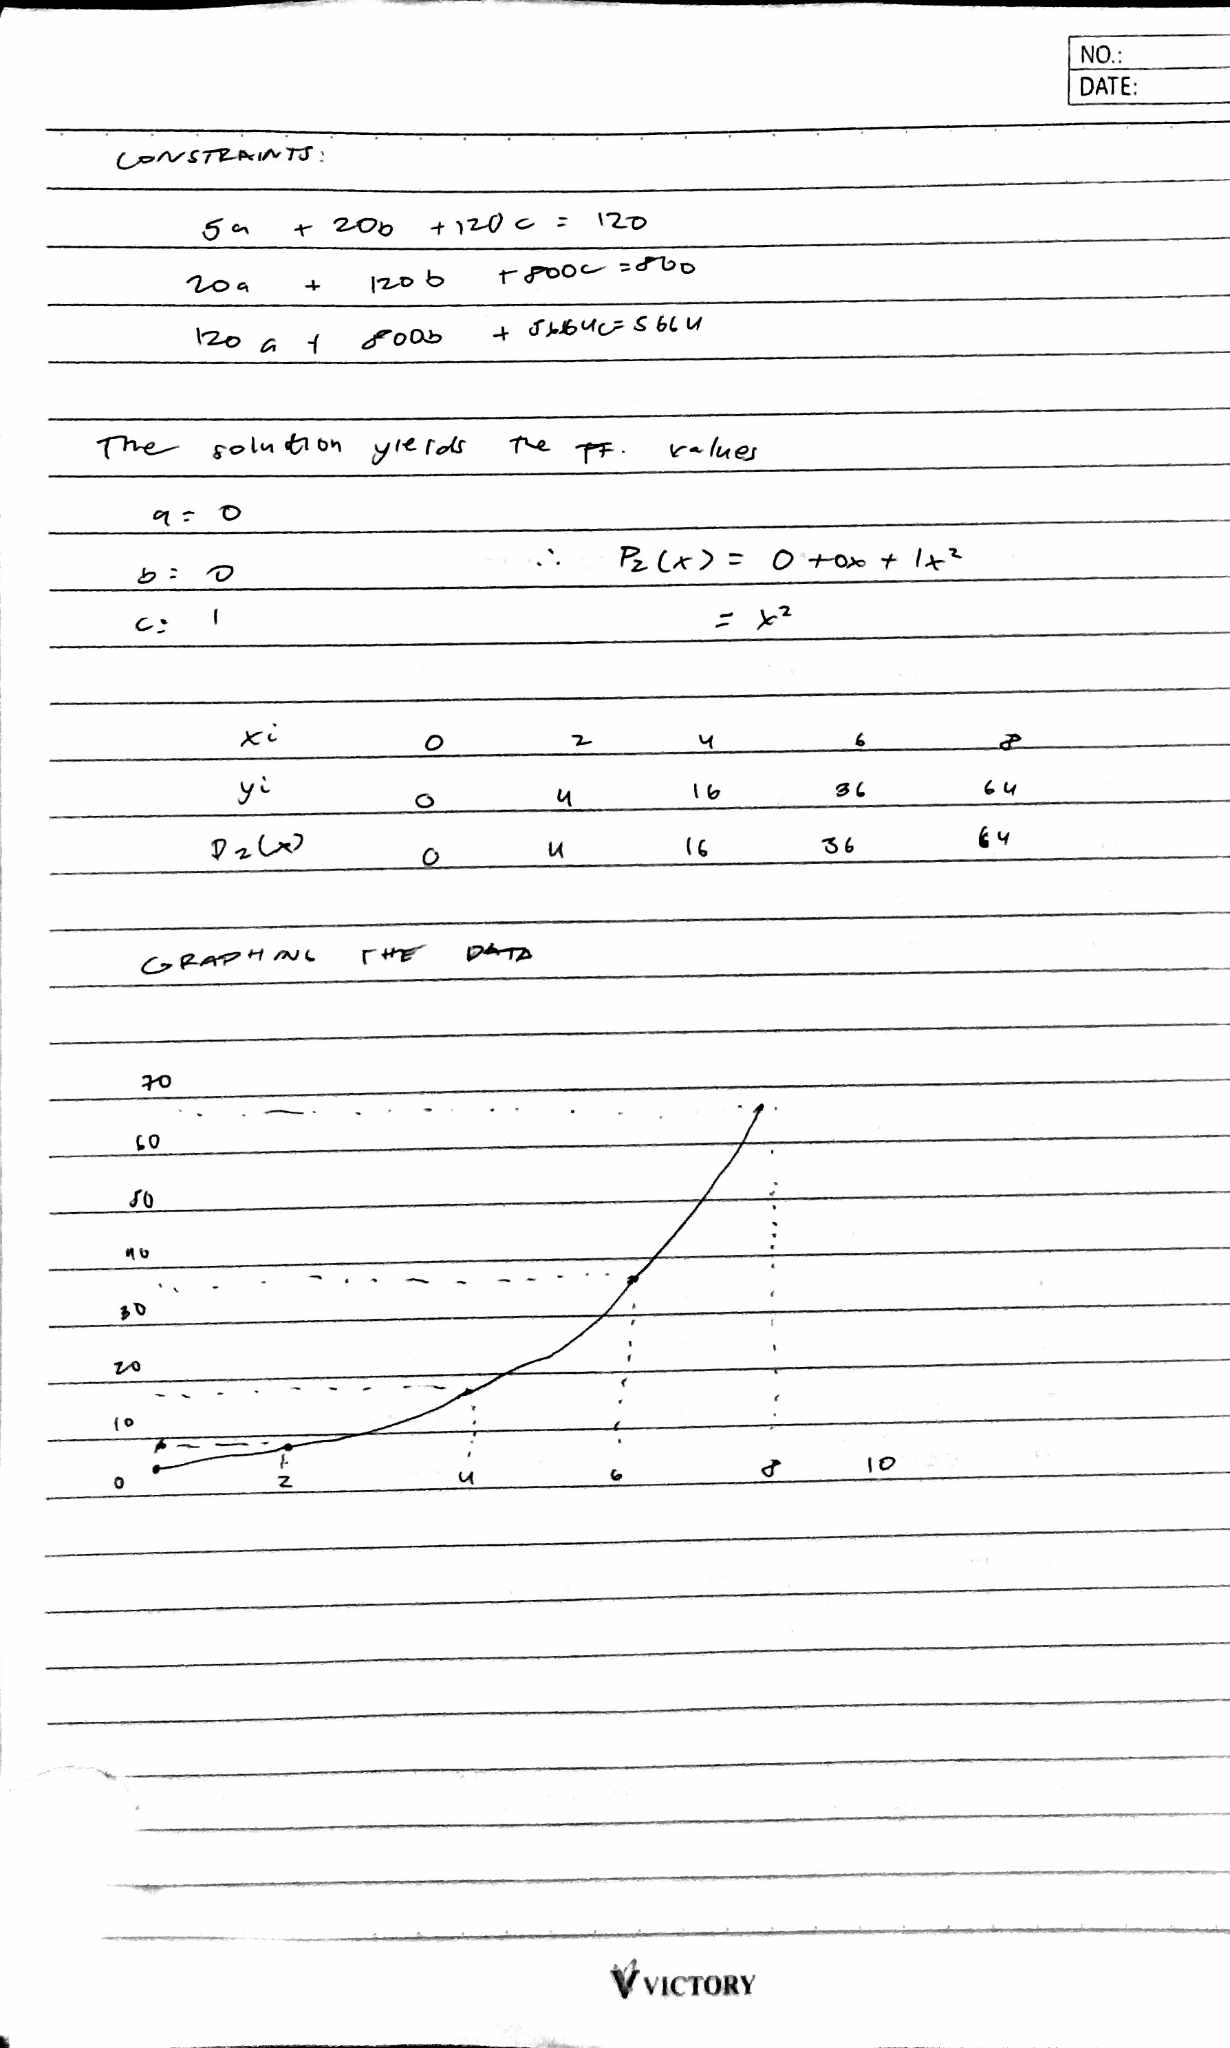 NO.:
DATE:
CONSTRAINTS:
5a + 20b + 120c = 120
20a + 120b + 800c = 800
120a + 800b + 5664c = 5664
The solution yields the ff. values
a = 0
b = 0 ∴ P2(x) = 0 + 0x + 1x²
c = 1 = x²
xi 0 2 4 6 8
yi 0 4 16 36 64
P2(x) 0 4 16 36 64
GRAPHING THE DATA
70
60
50
40
30
20
10
0 2 4 6 8 10
VICTORY